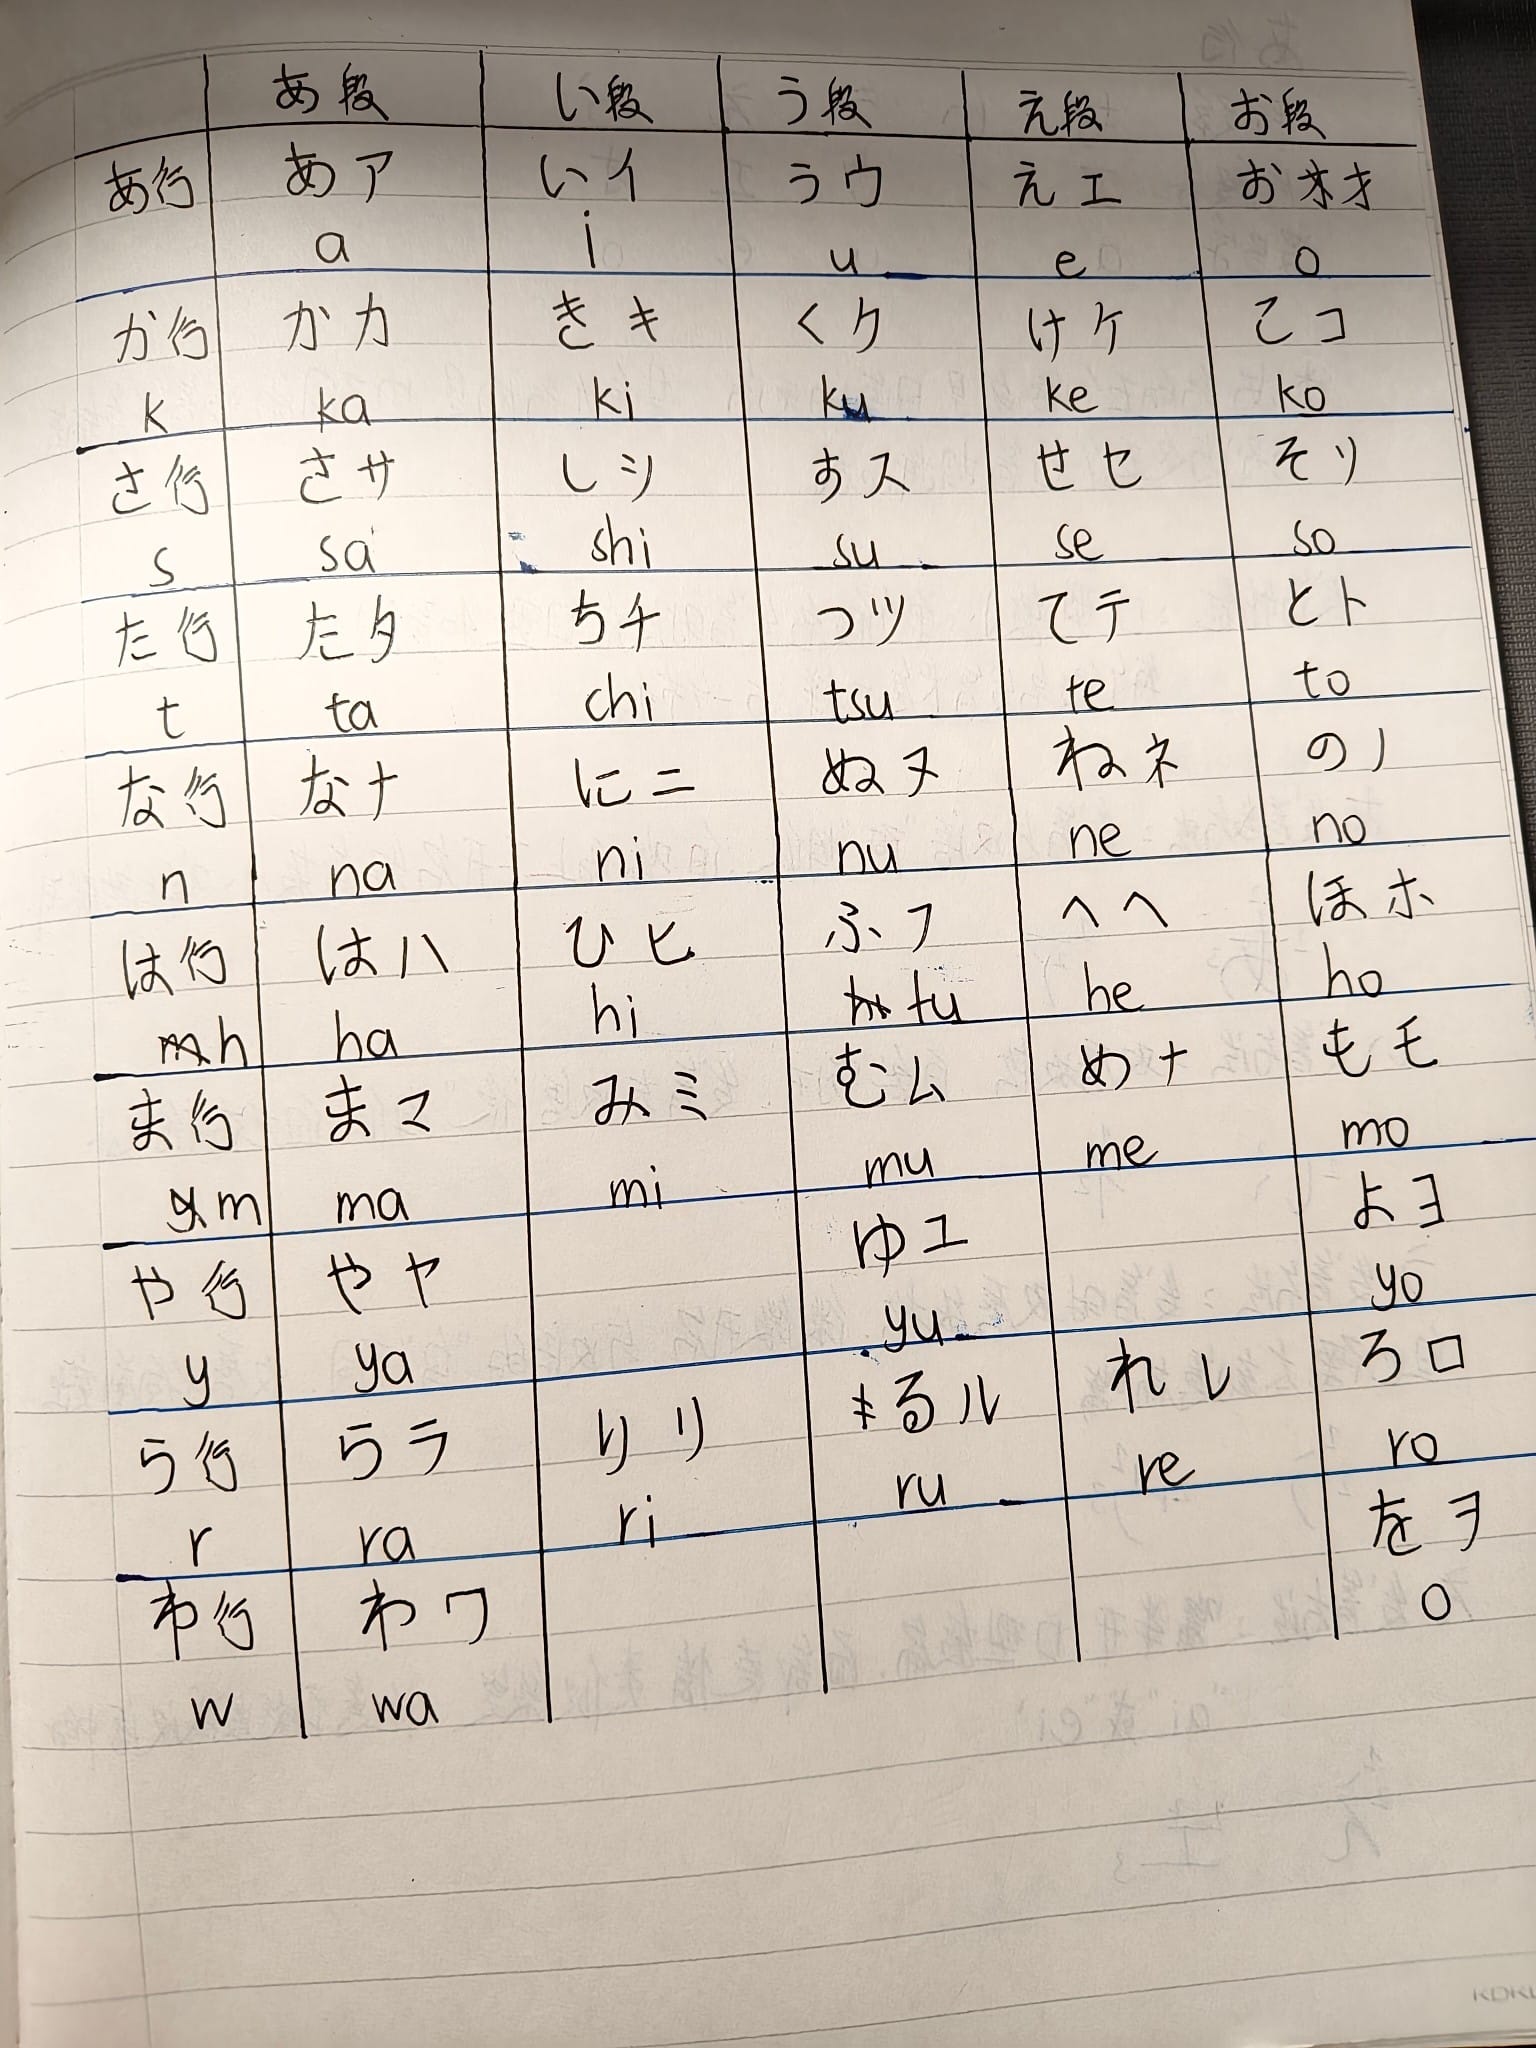 あ段 い段 う段 え段 お段
あ行 あア いイ うウ えエ おオ
a i u e o
か行 かカ きキ くク けケ こコ
k ka ki ku ke ko
さ行 さサ しシ すス せセ そソ
s sa shi su se so
た行 たタ ちチ つツ てテ とト
t ta chi tsu te to
な行 なナ にニ ぬヌ ねネ のノ
n na ni nu ne no
は行 はハ ひヒ ふフ へヘ ほホ
h ha hi fu he ho
ま行 まマ みミ むム めナ もモ
m ma mi mu me mo
や行 やヤ ゆユ よヨ
y ya yu yo
ら行 らラ りリ るル れレ ろロ
r ra ri ru re ro
わ行 わワ をヲ
w wa o